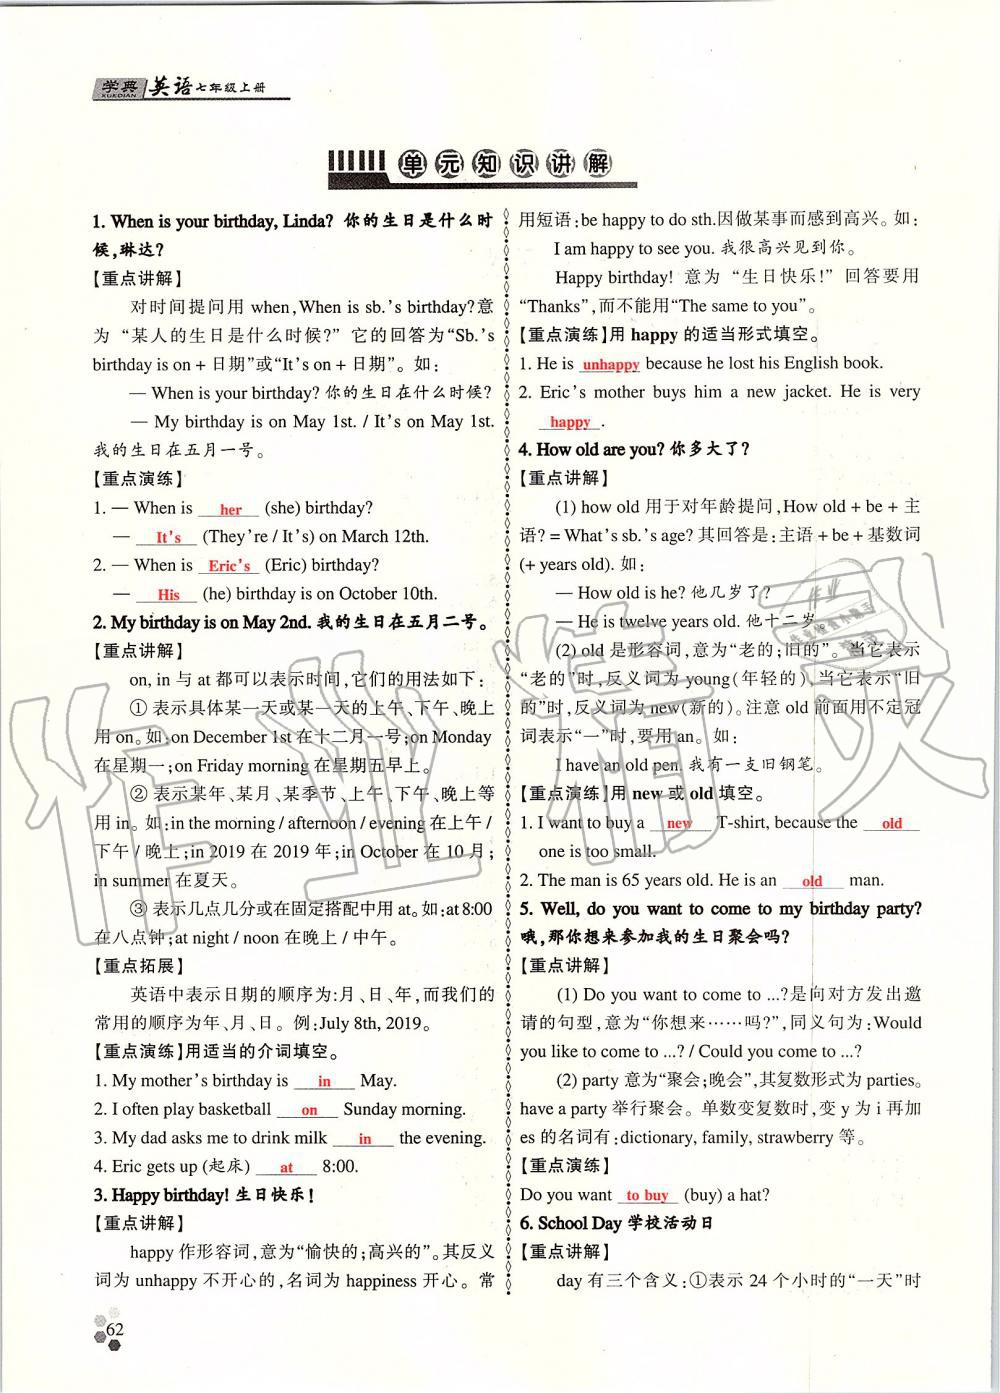 学典
XUEDIAN
英语七年级上册
单元知识讲解
1. When is your birthday, Linda? 你的生日是什么时
候,琳达?
【重点讲解】
对时间提问用 when,When is sb.'s birthday?意
为“某人的生日是什么时候?”它的回答为“Sb.'s
birthday is on + 日期”或“It's on + 日期”。如:
— When is your birthday? 你的生日在什么时候?
— My birthday is on May 1st. / It's on May 1st.
我的生日在五月一号。
【重点演练】
1. — When is her (she) birthday?
— It's (They're / It's) on March 12th.
2. — When is Eric's (Eric) birthday?
— His (he) birthday is on October 10th.
2. My birthday is on May 2nd. 我的生日在五月二号。
【重点讲解】
on, in 与 at 都可以表示时间,它们的用法如下:
① 表示具体某一天或某一天的上午、下午、晚上
用 on。如:on December 1st 在十二月一号;on Monday
在星期一;on Friday morning 在星期五早上。
② 表示某年、某月、某季节、上午、下午、晚上等
用 in。如:in the morning / afternoon / evening 在上午 /
下午 / 晚上;in 2019 在 2019 年;in October 在 10 月;
in summer 在夏天。
③ 表示几点几分或在固定搭配中用 at。如:at 8:00
在八点钟;at night / noon 在晚上 / 中午。
【重点拓展】
英语中表示日期的顺序为:月、日、年,而我们的
常用的顺序为年、月、日。例:July 8th, 2019。
【重点演练】用适当的介词填空。
1. My mother's birthday is in May.
2. I often play basketball on Sunday morning.
3. My dad asks me to drink milk in the evening.
4. Eric gets up (起床) at 8:00.
3. Happy birthday! 生日快乐!
【重点讲解】
happy 作形容词,意为“愉快的;高兴的”。其反义
词为 unhappy 不开心的,名词为 happiness 开心。常
用短语:be happy to do sth.因做某事而感到高兴。如:
I am happy to see you. 我很高兴见到你。
Happy birthday! 意为“生日快乐!”回答要用
“Thanks”,而不能用“The same to you”。
【重点演练】用 happy 的适当形式填空。
1. He is unhappy because he lost his English book.
2. Eric's mother buys him a new jacket. He is very
happy .
4. How old are you? 你多大了?
【重点讲解】
(1) how old 用于对年龄提问,How old + be + 主
语? = What's sb.'s age? 其回答是:主语 + be + 基数词
(+ years old). 如:
— How old is he? 他几岁了?
— He is twelve years old. 他十二岁。
(2) old 是形容词,意为“老的;旧的”。当它表示
“老的”时,反义词为 young(年轻的)、当它表示“旧
的”时,反义词为 new(新的)。注意 old 前面用不定冠
词表示“一”时,要用 an。如:
I have an old pen. 我有一支旧钢笔。
【重点演练】用 new 或 old 填空。
1. I want to buy a new T-shirt, because the old
one is too small.
2. The man is 65 years old. He is an old man.
5. Well, do you want to come to my birthday party?
哦,那你想来参加我的生日聚会吗?
【重点讲解】
(1) Do you want to come to ...?是向对方发出邀
请的句型,意为“你想来……吗?”,同义句为:Would
you like to come to ...? / Could you come to ...?
(2) party 意为“聚会;晚会”,其复数形式为 parties。
have a party 举行聚会。单数变复数时,变 y 为 i 再加
es 的名词有:dictionary, family, strawberry 等。
【重点演练】
Do you want to buy (buy) a hat?
6. School Day 学校活动日
【重点讲解】
day 有三个含义:①表示 24 个小时的“一天”时
62
作业精灵